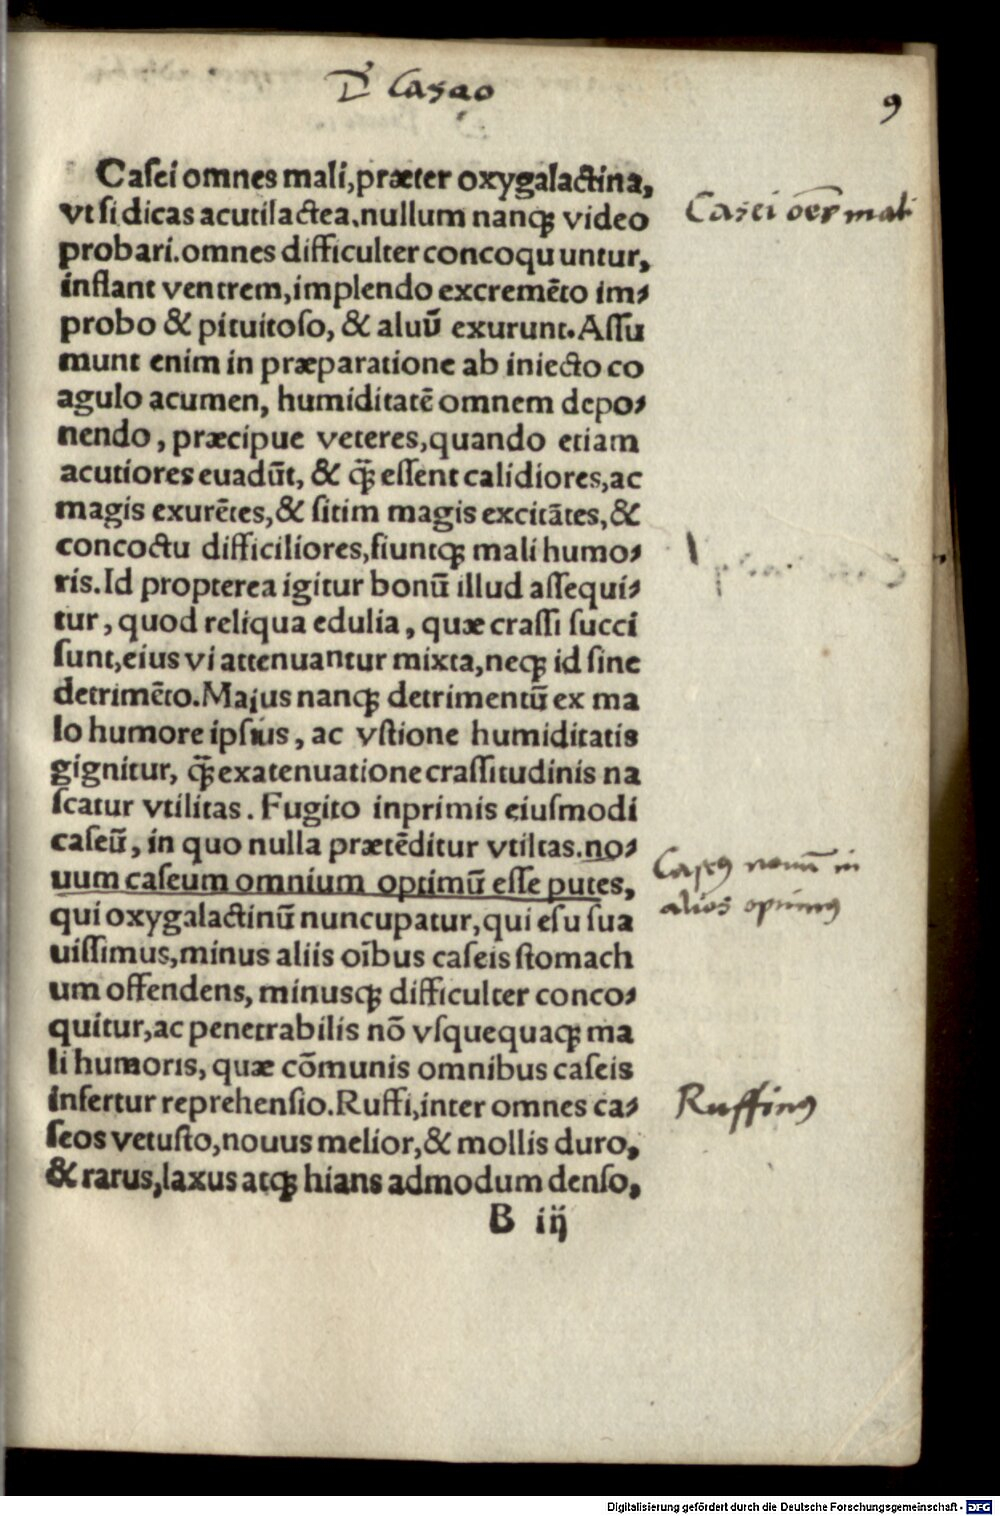 D Casao
9
Casei omnes mali, præter oxygalactina,
vt si dicas acutilactea. nullum nanqꝫ video
probari. omnes difficulter concoquuntur,
inflant ventrem, implendo excremēto im⸗
probo & pituitoso, & aluū exurunt. Assu
munt enim in præparatione ab iniecto co
agulo acumen, humiditatē omnem depo⸗
nendo, præcipue veteres, quando etiam
acutiores euadūt, & q̃ꝫ essent calidiores, ac
magis exurētes, & sitim magis excitātes, &
concoctu difficiliores, fiuntqꝫ mali humo⸗
ris. Id propterea igitur bonū illud assequi⸗
tur, quod reliqua edulia, quæ crassi succi
sunt, eius vi attenuantur mixta, neqꝫ id sine
detrimēto. Maius nanqꝫ detrimentū ex ma
lo humore ipsius, ac vstione humiditatis
gignitur, q̃ꝫ ex atenuatione crassitudinis na
scatur vtilitas. Fugito inprimis eiusmodi
caseū, in quo nulla prætēditur vtiltas. no⸗
uum caseum omnium optimū esse putes,
qui oxygalactinū nuncupatur, qui esu sua
uissimus, minus aliis oībus caseis stomach
um offendens, minusqꝫ difficulter conco⸗
quitur, ac penetrabilis nō vsquequaqꝫ ma
li humoris, quæ cōmunis omnibus caseis
infertur reprehensio. Ruffi, inter omnes ca⸗
seos vetusto, nouus melior, & mollis duro,
& rarus, laxus atqꝫ hians admodum denso,
B iij
Casei oēs mali
Caseꝰ nouū in
alios opimꝰ
Ruffinꝰ
Digitalisierung gefördert durch die Deutsche Forschungsgemeinschaft - DFG